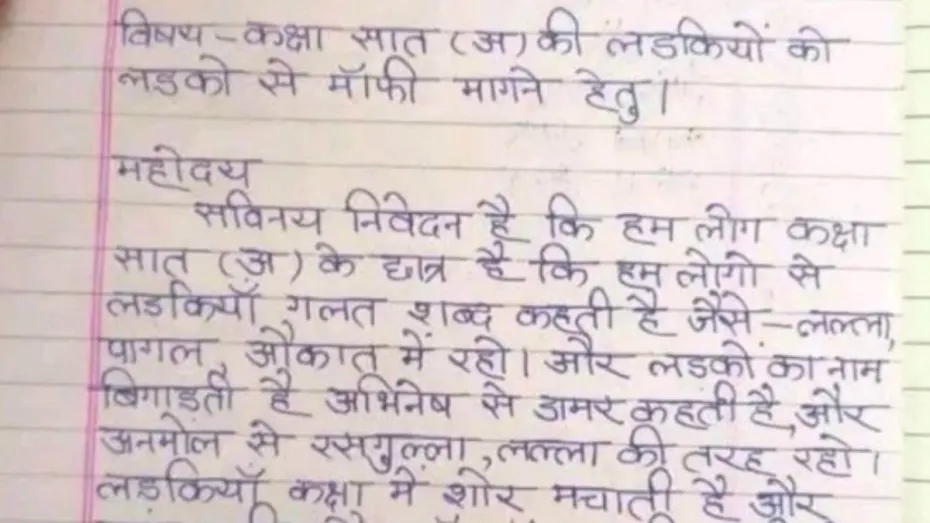 विषय - कक्षा सात (अ) की लडकियों को
लडको से मॉफी मागने हेतु।
महोदय
सविनय निवेदन है कि हम लोग कक्षा
सात (अ) के छात्र है कि हम लोगो से
लडकियाँ गलत शब्द कहती है जैसे - लल्ला,
पागल, औकात में रहो। और लडको का नाम
बिगाडती है अभिनेष से डामर कहती है, और
अनमोल से रसगुल्ला, लल्ला की तरह रहो।
लडकियाँ कक्षा में शोर मचाती है और